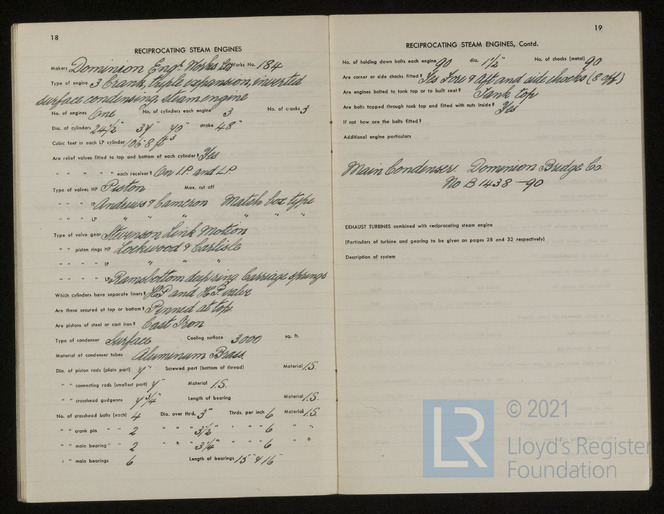 18
RECIPROCATING STEAM ENGINES
Makers Dominion Engr Works Ltd Works No. 184
Type of engine 3 Crank, triple expansion, inverted
surface condensing, steam engine
No. of engines One No. of cylinders each engine 3 No. of cranks 3
Dia. of cylinders 24½" 37" 70" stroke 48"
Cubic feet in each LP cylinder 106.8 ft³
Are relief valves fitted to top and bottom of each cylinder? Yes
" " " " each receiver? On IP and LP
Type of valves HP Piston Max. cut off
" " " Andrews & Cameron Match box type
" " LP " " " " "
Type of valve gear Stevenson Link Motion
" " piston rings HP Lockwood & Carlisle
" " " " IP " " "
" " " " Ramsbottom deep ring Carriage springs
Which cylinders have separate liners? HP and HP valve
Are these secured at top or bottom? Pinned at top
Are pistons of steel or cast iron? Cast Iron
Type of condenser Surface Cooling surface 3000 sq. ft.
Material of condenser tubes Aluminum Brass
Dia. of piston rods (plain part) 7" Screwed part (bottom of thread) Material I.S.
" " connecting rods (smallest part) 7" Material I.S.
" " crosshead gudgeons 7¾" Length of bearing Material I.S.
No. of crosshead bolts (each) 4 Dia. over thrd. 3" Thrds. per inch 6 Material I.S.
" " crank pin " " 2 " " " 3½" " " " 6 " "
" " main bearing " " 2 " " " 3¼" " " " 6 " "
" " main bearings 6 Length of bearings 15" & 16"
19
RECIPROCATING STEAM ENGINES, Contd.
No. of holding down bolts each engine 90 dia. 1½" No. of chocks (metal) 90
Are corner or side chocks fitted? Yes Fore & Aft and side chocks (8 off)
Are engines bolted to tank top or to built seat? Tank top
Are bolts tapped through tank top and fitted with nuts inside? Yes
If not how are the bolts fitted?
Additional engine particulars
Main Condenser: Dominion Bridge Co
No B1438-90
EXHAUST TURBINES combined with reciprocating steam engine
(Particulars of turbine and gearing to be given on pages 28 and 32 respectively)
Description of system
LR
© 2021
Lloyd's Register
Foundation